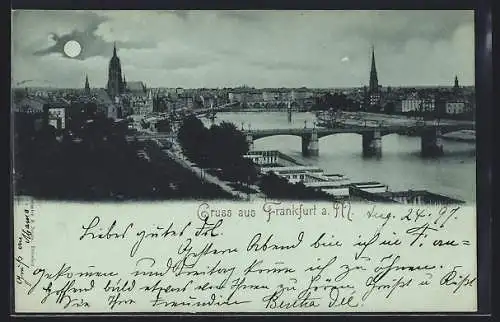 Gruss aus Frankfurt a. M.
Aug. 24. 97.
Liebes gutes Frl.
Gestern Abend bin ich in F. an-
gekommen und Freitag komme ich zu Ihnen.
Hoffend bald etwas von Ihnen zu hören Grüßt u Küßt
Sie Ihre Freundin Bertha
Gruß an Mama